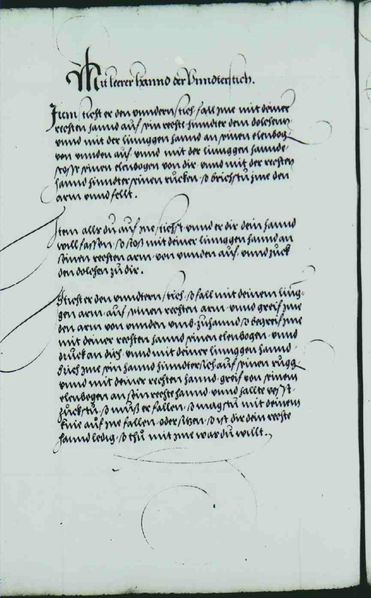 Mit lerer hannd der Vnnderstich.
Item sticht er den vnndern stich so fall jme mit deiner
rechten hannd auf sein rechte hinnder dem dolchenn
vnnd mit der linnggen hannd an seinen elenbog
von vnnden auf vnnd mit der linnggen hannde
stoss seinen elenbogen von dir vnnd mit der rechten
hannd hinnder seinen rucken so brichstu jme den
arm vnnd fellt.
Item alls du auf jne sichst vnnd er dir dein hannd
will fassen so stoss mit deiner linnggen hannd an
seinen rechten arm von vnnden auf vnnd zuck
den dolchen zu dir.
Stichst er den vnndern stich so fall mit deinem ling-
gen arm auf seinen rechten arm vnnd greif jme
den arm von vnnden vnnd zuhannd so begreif jme
mit deiner rechten hannd seinen elenbogen vnnd
druck an dich vnnd mit deiner linnggen hannd
jme sein hannd hinndersich auf seinen rugg
vnnd mit deiner rechten hannd greif von seinem
elenbogen an sein recht hannd vnnd hallt vesst
zuckstu so muss er fallen so magstu mit deinem
knie auf jne fallen oder sitzen so ist dir dein rechte
hannd ledig so thu mit jme was du willt.